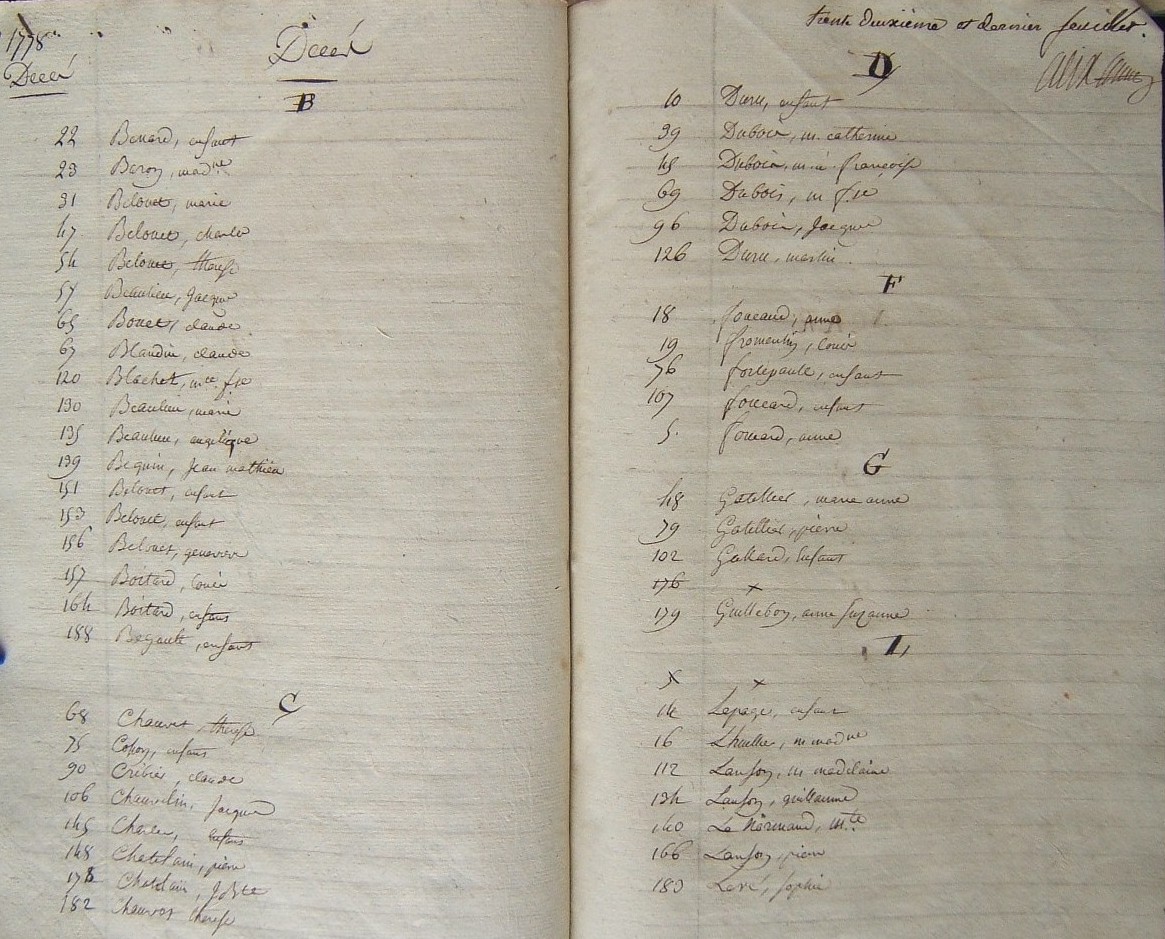 1778
Déces
Déces
B
22 Benard, enfant
23 Beroy, mad.ne
31 Belouet, marie
47 Belouet, charles
54 Belouet, therese
57 Beaulieu, Jacque
65 Bouet, claude
67 Blandin, claude
120 Blachet, m.ce f.se
130 Beaulieu, marie
135 Beaulieu, angelique
139 Bequin, Jean mathieu
151 Belouet, enfant
153 Belouet, enfant
156 Belouet, genevieve
157 Boitard, Louis
164 Boitard, enfant
188 Begault, enfant
C
68 Chauvet, therese
75 enfant
90 Cribier, claude
106 Chauvelin, Jacque
145 enfant
148 Chatelain, pierre
178 Chatelain, J.Bte
182 Chauvet therese
trente deuxième et dernier feuillet.
D
10 Duru, enfant
39 Dubois, m. catherine
45 Dubois, m.ie françoise
69 Dubois, m f.se
96 Dubois, Jacque
126 Duru, martin
F
18 foucard, anne
19 fromentin, Louis
76 fortepaule, enfant
107 foucard, enfant
5. foucard, anne
G
48 Gatellier, marie anne
79 Gatellier, pierre
102 Gallard, Enfant
176 x
179 Guilleboy, anne Suzanne
L
x x
14 Lepage, enfant
16 Lhuillier, m mad.ne
112 Lanson, m madelaine
134 Lanson, guillaume
140 Le Normand, m.te
166 Lanson, pierre
180 Levé, Sophie